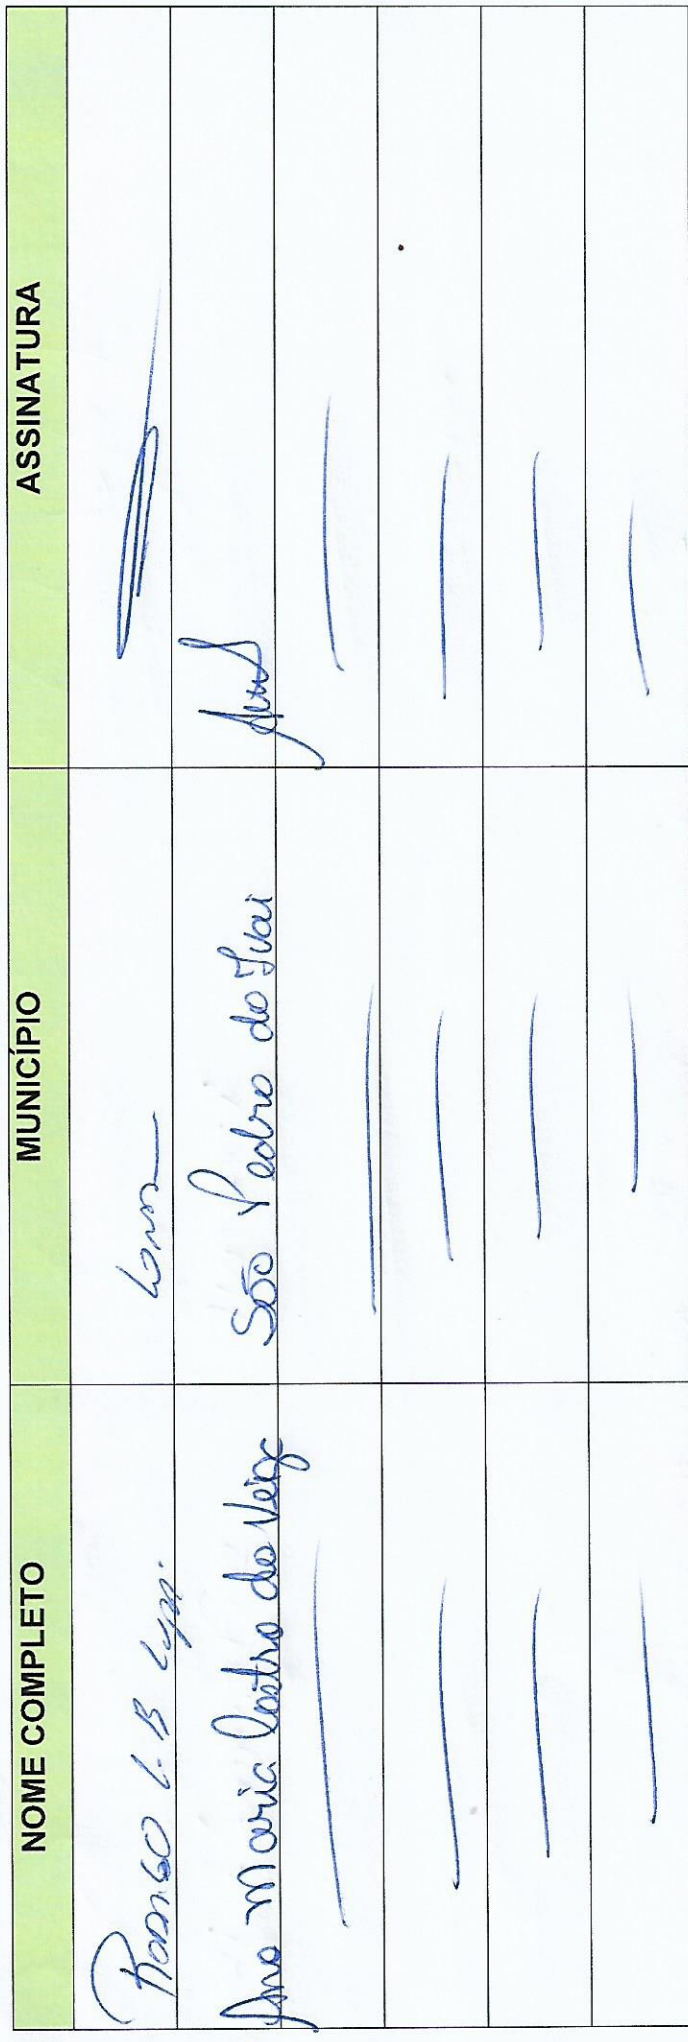 NOME COMPLETO MUNICÍPIO ASSINATURA
Rodrigo L. B
Ana Maria Castro da Veiga São Pedro do Ivai